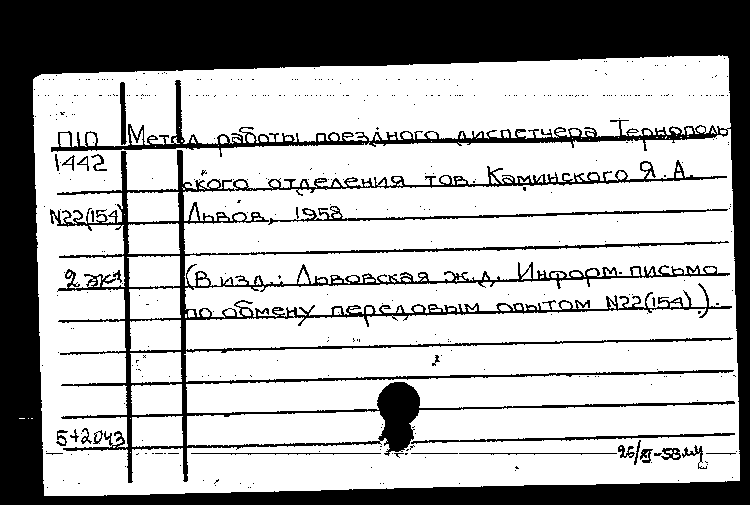 П10 Метод работы поездного диспетчера Тернополь
1442
ского отделения тов. Каминского Я.А.
N22(154) Львов, 1958
2 экз (В изд.: Львовская ж.д. Информ. письмо
по обмену передовым опытом N22(154).).
5+2043